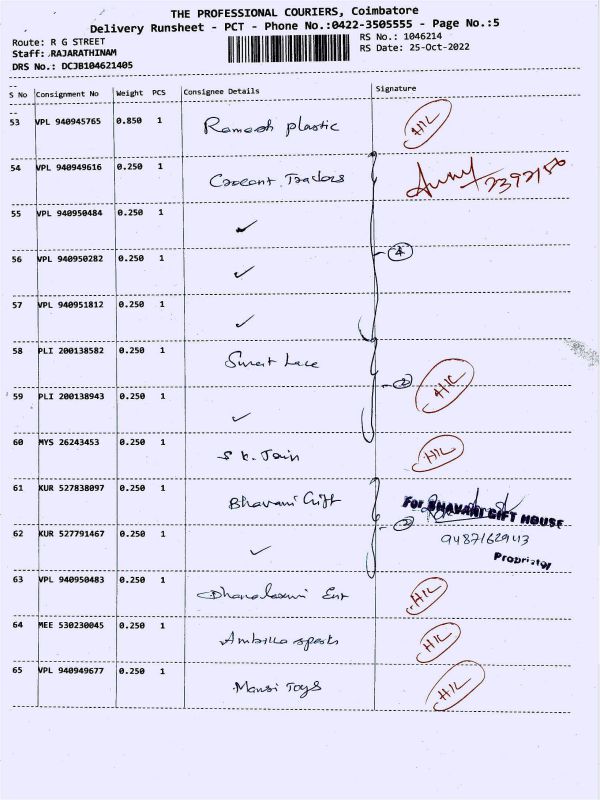 THE PROFESSIONAL COURIERS, Coimbatore
Delivery Runsheet - PCT - Phone No.:0422-3505555 - Page No.:5
Route: R G STREET
RS No.: 1046214
Staff: RAJARATHINAM
RS Date: 25-Oct-2022
DRS No.: DCJB104621405
S No Consignment No Weight PCS Consignee Details Signature
53 VPL 940945765 0.850 1 Ramesh plastic H1L
54 VPL 940949616 0.250 1 Crecent Traders
55 VPL 940950484 0.250 1 ✓
56 VPL 940950282 0.250 1 ✓ 4
57 VPL 940951812 0.250 1 ✓
58 PLI 200138582 0.250 1 Smart Lace
59 PLI 200138943 0.250 1 ✓ 2 H1L
60 MYS 26243453 0.250 1 S K. Jain H1L
61 KUR 527838097 0.250 1 Bhavani Gift For BHAVANI GIFT HOUSE
62 KUR 527791467 0.250 1 ✓ 2 9487162943
Proprietor
63 VPL 940950483 0.250 1 Dhanalaxmi Ent H1L
64 MEE 530230045 0.250 1 Ambika sports H1L
65 VPL 940949677 0.250 1 Mansi Toys H1L